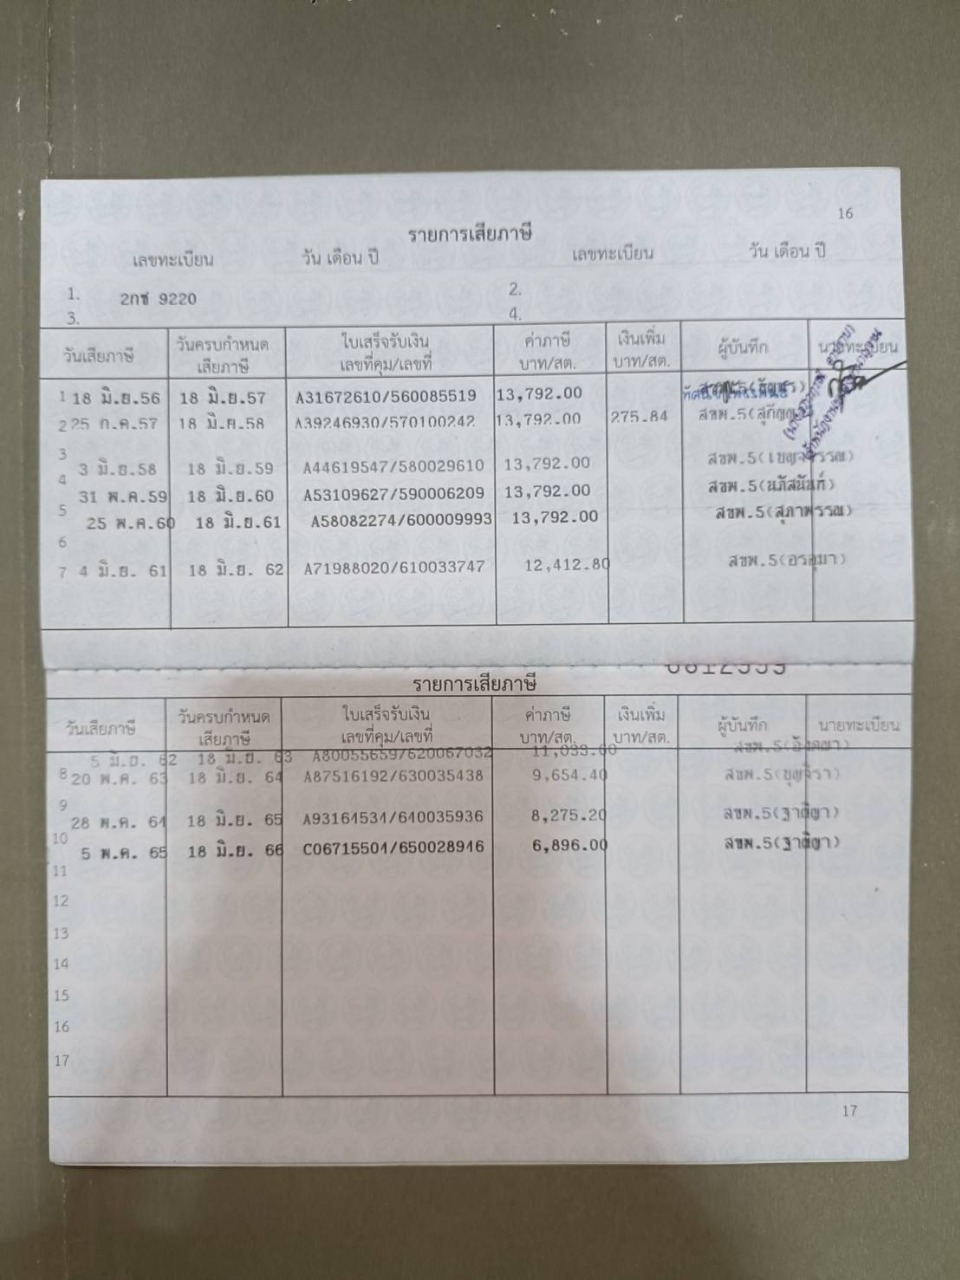 16
รายการเสียภาษี
เลขทะเบียน วัน เดือน ปี เลขทะเบียน วัน เดือน ปี
1. 2กช 9220 2.
3. 4.
วันเสียภาษี วันครบกำหนดเสียภาษี ใบเสร็จรับเงิน เลขที่คุม/เลขที่ ค่าภาษี บาท/สต. เงินเพิ่ม บาท/สต. ผู้บันทึก นายทะเบียน
1 18 มิ.ย.56 18 มิ.ย.57 A31672610/560085519 13,792.00
2 25 ก.ค.57 18 มิ.ย.58 A39246930/570100242 13,792.00 275.84
3
3 มิ.ย.58 18 มิ.ย.59 A44619547/580029610 13,792.00
4
31 พ.ค.59 18 มิ.ย.60 A53109627/590006209 13,792.00 สขพ.5(นภัสนันท์)
5
25 พ.ค.60 18 มิ.ย.61 A58082274/600009993 13,792.00 สขพ.5(สุภาพรรณ)
6
7 4 มิ.ย. 61 18 มิ.ย. 62 A71988020/610033747 12,412.80 สขพ.5(อรอุมา)
รายการเสียภาษี
วันเสียภาษี วันครบกำหนดเสียภาษี ใบเสร็จรับเงิน เลขที่คุม/เลขที่ ค่าภาษี บาท/สต. เงินเพิ่ม บาท/สต. ผู้บันทึก นายทะเบียน
5 มิ.ย. 62 18 มิ.ย. 63 A80055659/620067032 11,033.60
8 20 พ.ค. 63 18 มิ.ย. 64 A87516192/630035438 9,654.40 สขพ.5(ชุญจิรา)
9
28 พ.ค. 64 18 มิ.ย. 65 A93164534/640035936 8,275.20 สขพ.5(ฐาติญา)
10
5 พ.ค. 65 18 มิ.ย. 66 C06715504/650028946 6,896.00 สขพ.5(ฐาติญา)
11
12
13
14
15
16
17
17